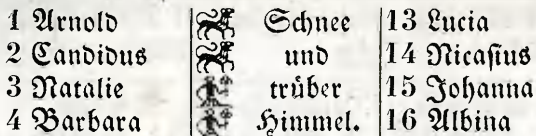 1 Arnold Schnee 13 Lucia
2 Candidus und 14 Nicasius
3 Natalie trüber 15 Johanna
4 Barbara Himmel. 16 Albina